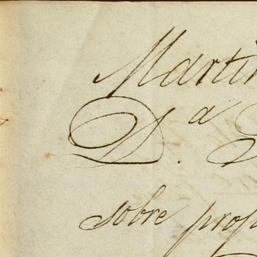 Martin
D.ª
sobre prop